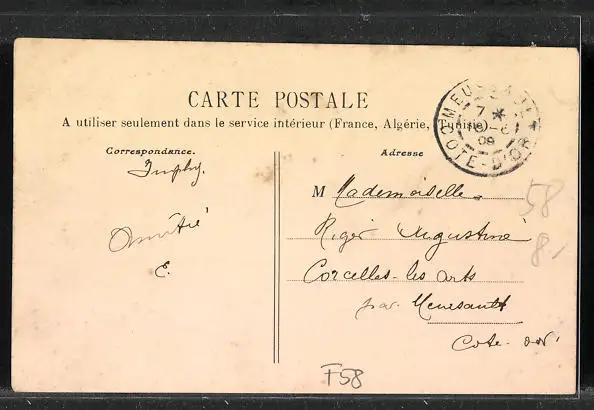 CARTE POSTALE
A utiliser seulement dans le service intérieur (France, Algérie, Tunisie)
Correspondance.
Imphy.
Amitié
E.
Adresse
M Mademoiselle
Riger Augustine
Corcelles-les arts
par Meursault
Cote-d'Or
MEURSAULT
7
09
COTE-D'OR
58
8,
F58